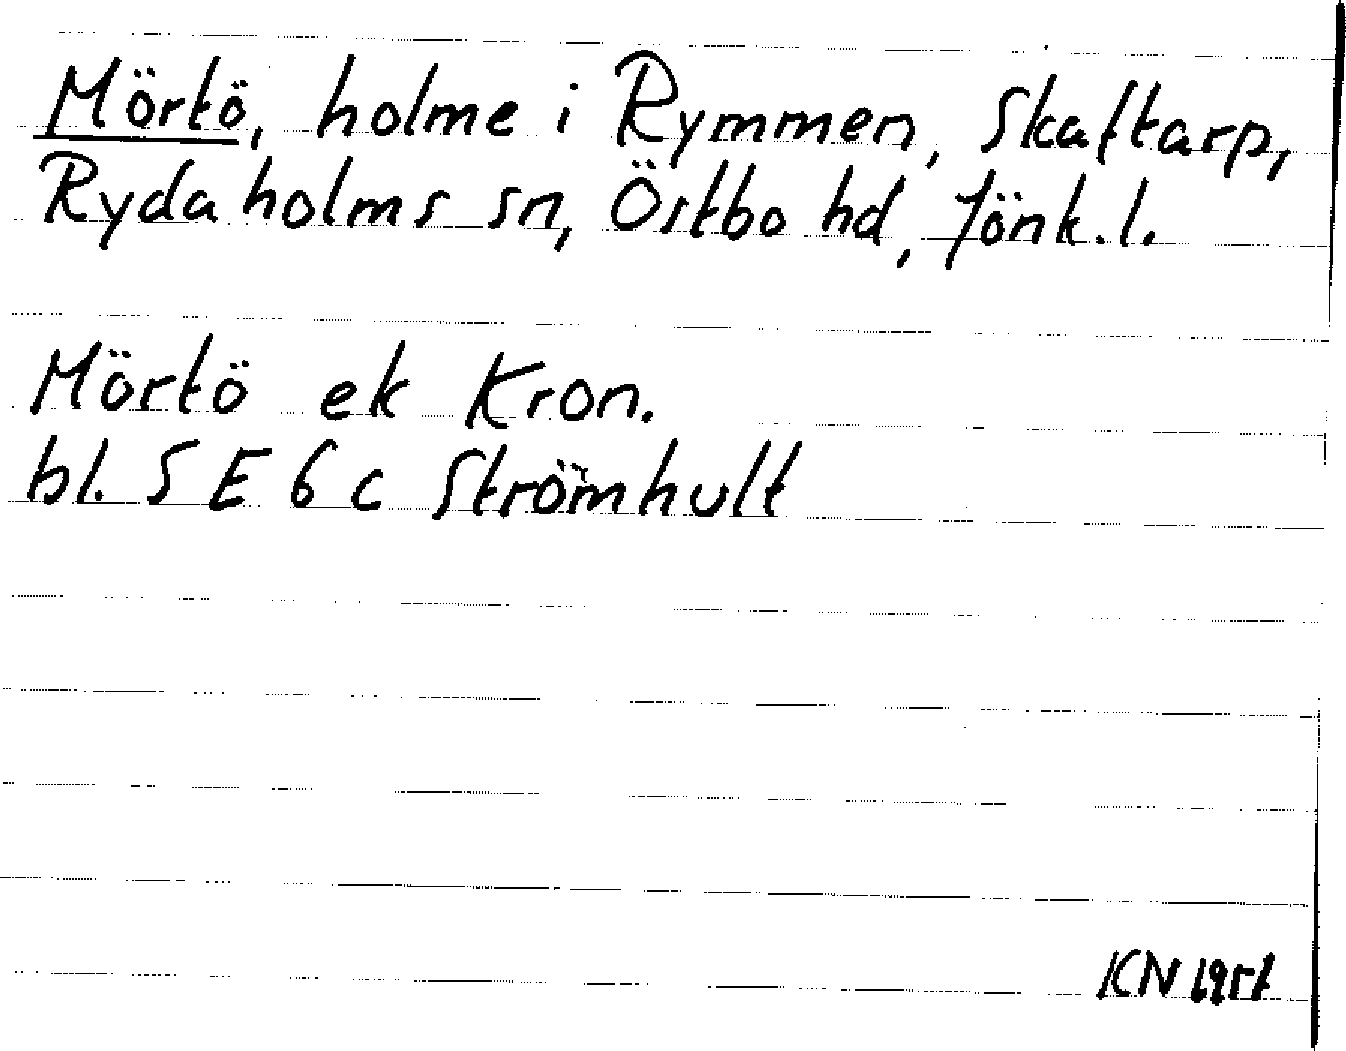 Mörtö, holme i Rymmen, Skaftarp,
Rydaholms sn, Östbo hd, Jönk.l.
Mörtö ek Kron.
bl. 5 E 6 c Strömhult
KN 1951